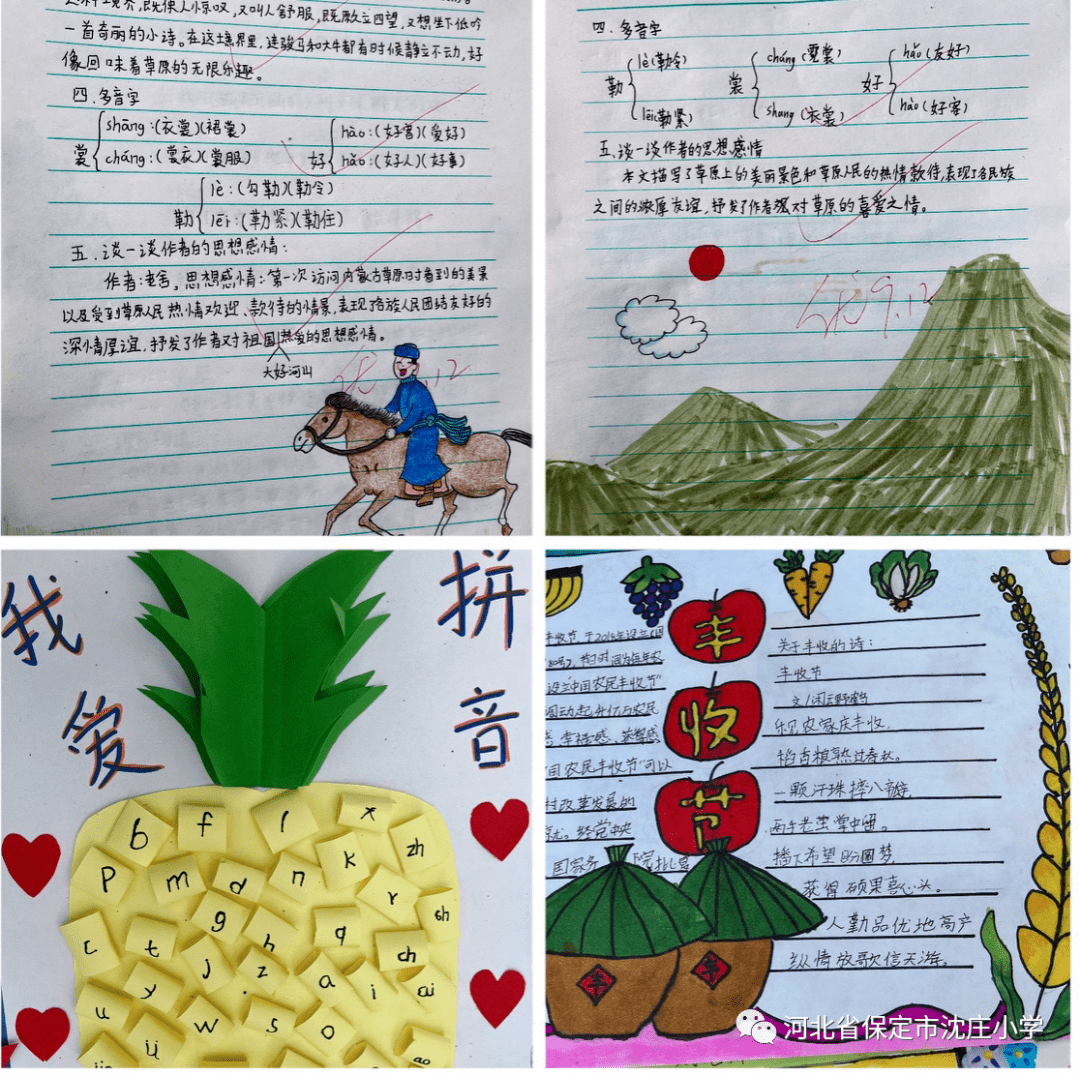 境界,既使人惊叹,又叫人舒服,既愿久立四望,又想坐下低吟
一首奇丽的小诗。在这境界里,连骏马和大牛都有时候静立不动,好
像回味着草原的无限乐趣。
四.多音字
裳 shāng:(衣裳)(裙裳)
cháng:(裳衣)(裳服)
好 hào:(好客)(爱好)
hǎo:(好人)(好事)
勒 lè:(勾勒)(勒令)
lēi:(勒紧)(勒住)
五.谈一谈作者的思想感情:
作者:老舍,思想感情:第一次访问内蒙古草原时看到的美景
以及受到草原人民热情欢迎、款待的情景,表现了各族人民团结友好的
深情厚谊,抒发了作者对祖国热爱的思想感情。
大好河山
优 9.12
四.多音字
勒 lè(勒令)
lēi(勒紧)
裳 cháng(霓裳)
shang(衣裳)
好 hǎo(友好)
hào(好客)
五、谈一谈作者的思想感情
本文描写了草原上的美丽景色和草原人民的热情款待,表现了各民族
之间的浓厚友谊,抒发了作者对草原的喜爱之情。
优 9.12
我 拼
爱 音
b f l x
p m d n k zh
g r sh
t t h q ch
y j z a i ai
u w s o
ü ao
丰
收
节
丰收节,于2018年设立
设立"中国农民丰收节"
亿万农民
幸福感、获得感
国农民丰收节"可以
村改革发展的
就。经党中央
国家务院批
关于丰收的诗:
丰收节
文/闲云野鹤
乐见农家庆丰收,
稻香植熟过春秋。
一颗汗珠摔八瓣,
两手老茧掌中留。
播下希望盼圆梦,
获得硕果喜心头。
人勤品优地高产
纵情放歌信天游。
丰
丰
河北省保定市沈庄小学